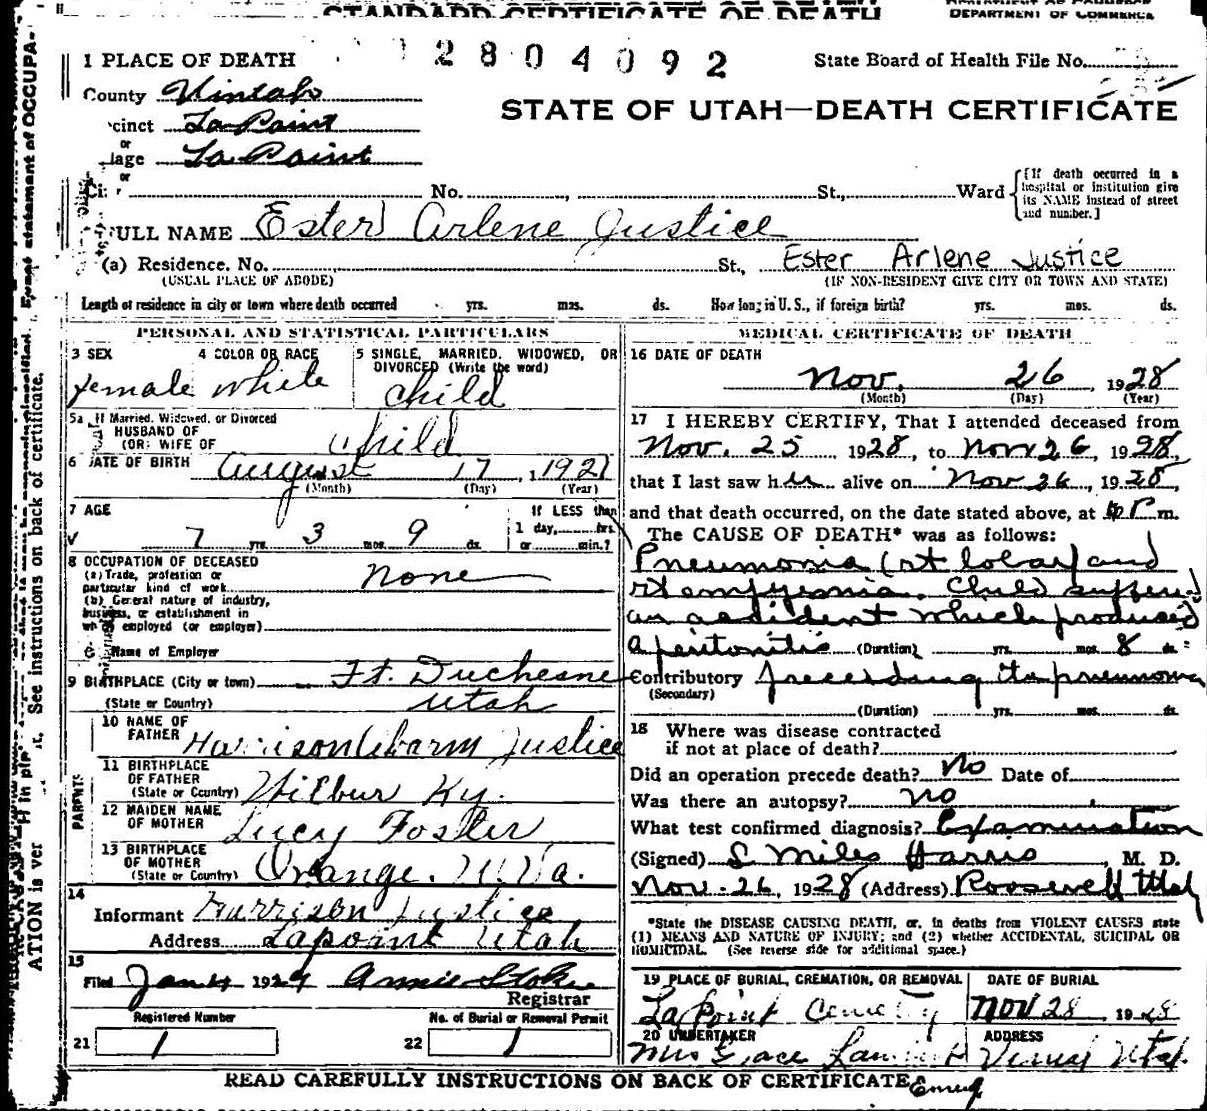 STANDARD CERTIFICATE OF DEATH
DEPARTMENT OF COMMERCE
1 PLACE OF DEATH
2804092
State Board of Health File No.
County Uintah
STATE OF UTAH—DEATH CERTIFICATE
cinct La Point
or
lage La Point
or
No. St., Ward
[If death occurred in a hospital or institution give its NAME instead of street and number.]
ULL NAME Ester Arlene Justice
(a) Residence. No. St., Ester Arlene Justice
(USUAL PLACE OF ABODE) (IF NON-RESIDENT GIVE CITY OR TOWN AND STATE)
Length of residence in city or town where death occurred yrs. mos. ds. How long in U.S., if foreign birth? yrs. mos. ds.
PERSONAL AND STATISTICAL PARTICULARS
3 SEX 4 COLOR OR RACE 5 SINGLE, MARRIED, WIDOWED, OR DIVORCED (Write the word)
female white child
5a If Married, Widowed, or Divorced
HUSBAND OF
(OR) WIFE OF child
6 DATE OF BIRTH August 17, 1921
(Month) (Day) (Year)
7 AGE If LESS than
7 yrs. 3 mos. 9 ds. 1 day, hrs. or min.?
8 OCCUPATION OF DECEASED
(a) Trade, profession or particular kind of work none
(b) General nature of industry, business, or establishment in which employed (or employer)
Name of Employer
9 BIRTHPLACE (City or town) Ft. Duchesne
(State or Country) Utah
PARENTS
10 NAME OF FATHER Harrison Justice
11 BIRTHPLACE OF FATHER
(State or Country) Wilbur Ky.
12 MAIDEN NAME OF MOTHER Lucy Foster
13 BIRTHPLACE OF MOTHER
(State or Country) Orange. W. Va.
14
Informant Harrison Justice
Address Lapoint Utah
15
Filed Jan 4 1929 Annie
Registrar
Registered Number No. of Burial or Removal Permit
21 1 22 1
MEDICAL CERTIFICATE OF DEATH
16 DATE OF DEATH
Nov. 26, 1928
(Month) (Day) (Year)
17 I HEREBY CERTIFY, That I attended deceased from
Nov. 25 1928, to Nov 26, 1928,
that I last saw her alive on Nov 26, 1928,
and that death occurred, on the date stated above, at P m.
The CAUSE OF DEATH* was as follows:
Pneumonia (rt lobar) and
rt empyemia. Child suffered
an accident which produced
a peritonitis (Duration) yrs. mos. 8 ds.
Contributory preceeding to pneumonia
(Secondary)
(Duration) yrs. mos. ds.
18 Where was disease contracted
if not at place of death?
Did an operation precede death? No Date of
Was there an autopsy? no
What test confirmed diagnosis? Examination
(Signed) S Miles Harris, M. D.
Nov. 26, 1928 (Address) Roosevelt Utah
*State the DISEASE CAUSING DEATH, or, in deaths from VIOLENT CAUSES state
(1) MEANS AND NATURE OF INJURY; and (2) whether ACCIDENTAL, SUICIDAL OR
HOMICIDAL. (See reverse side for additional space.)
19 PLACE OF BURIAL, CREMATION, OR REMOVAL DATE OF BURIAL
La Point Cemetery Nov 28, 1928
20 UNDERTAKER ADDRESS
Mrs Grace Vernal Utah.
READ CAREFULLY INSTRUCTIONS ON BACK OF CERTIFICATE
ATION is very See instructions on back of certificate.
Exact statement of OCCUPA-